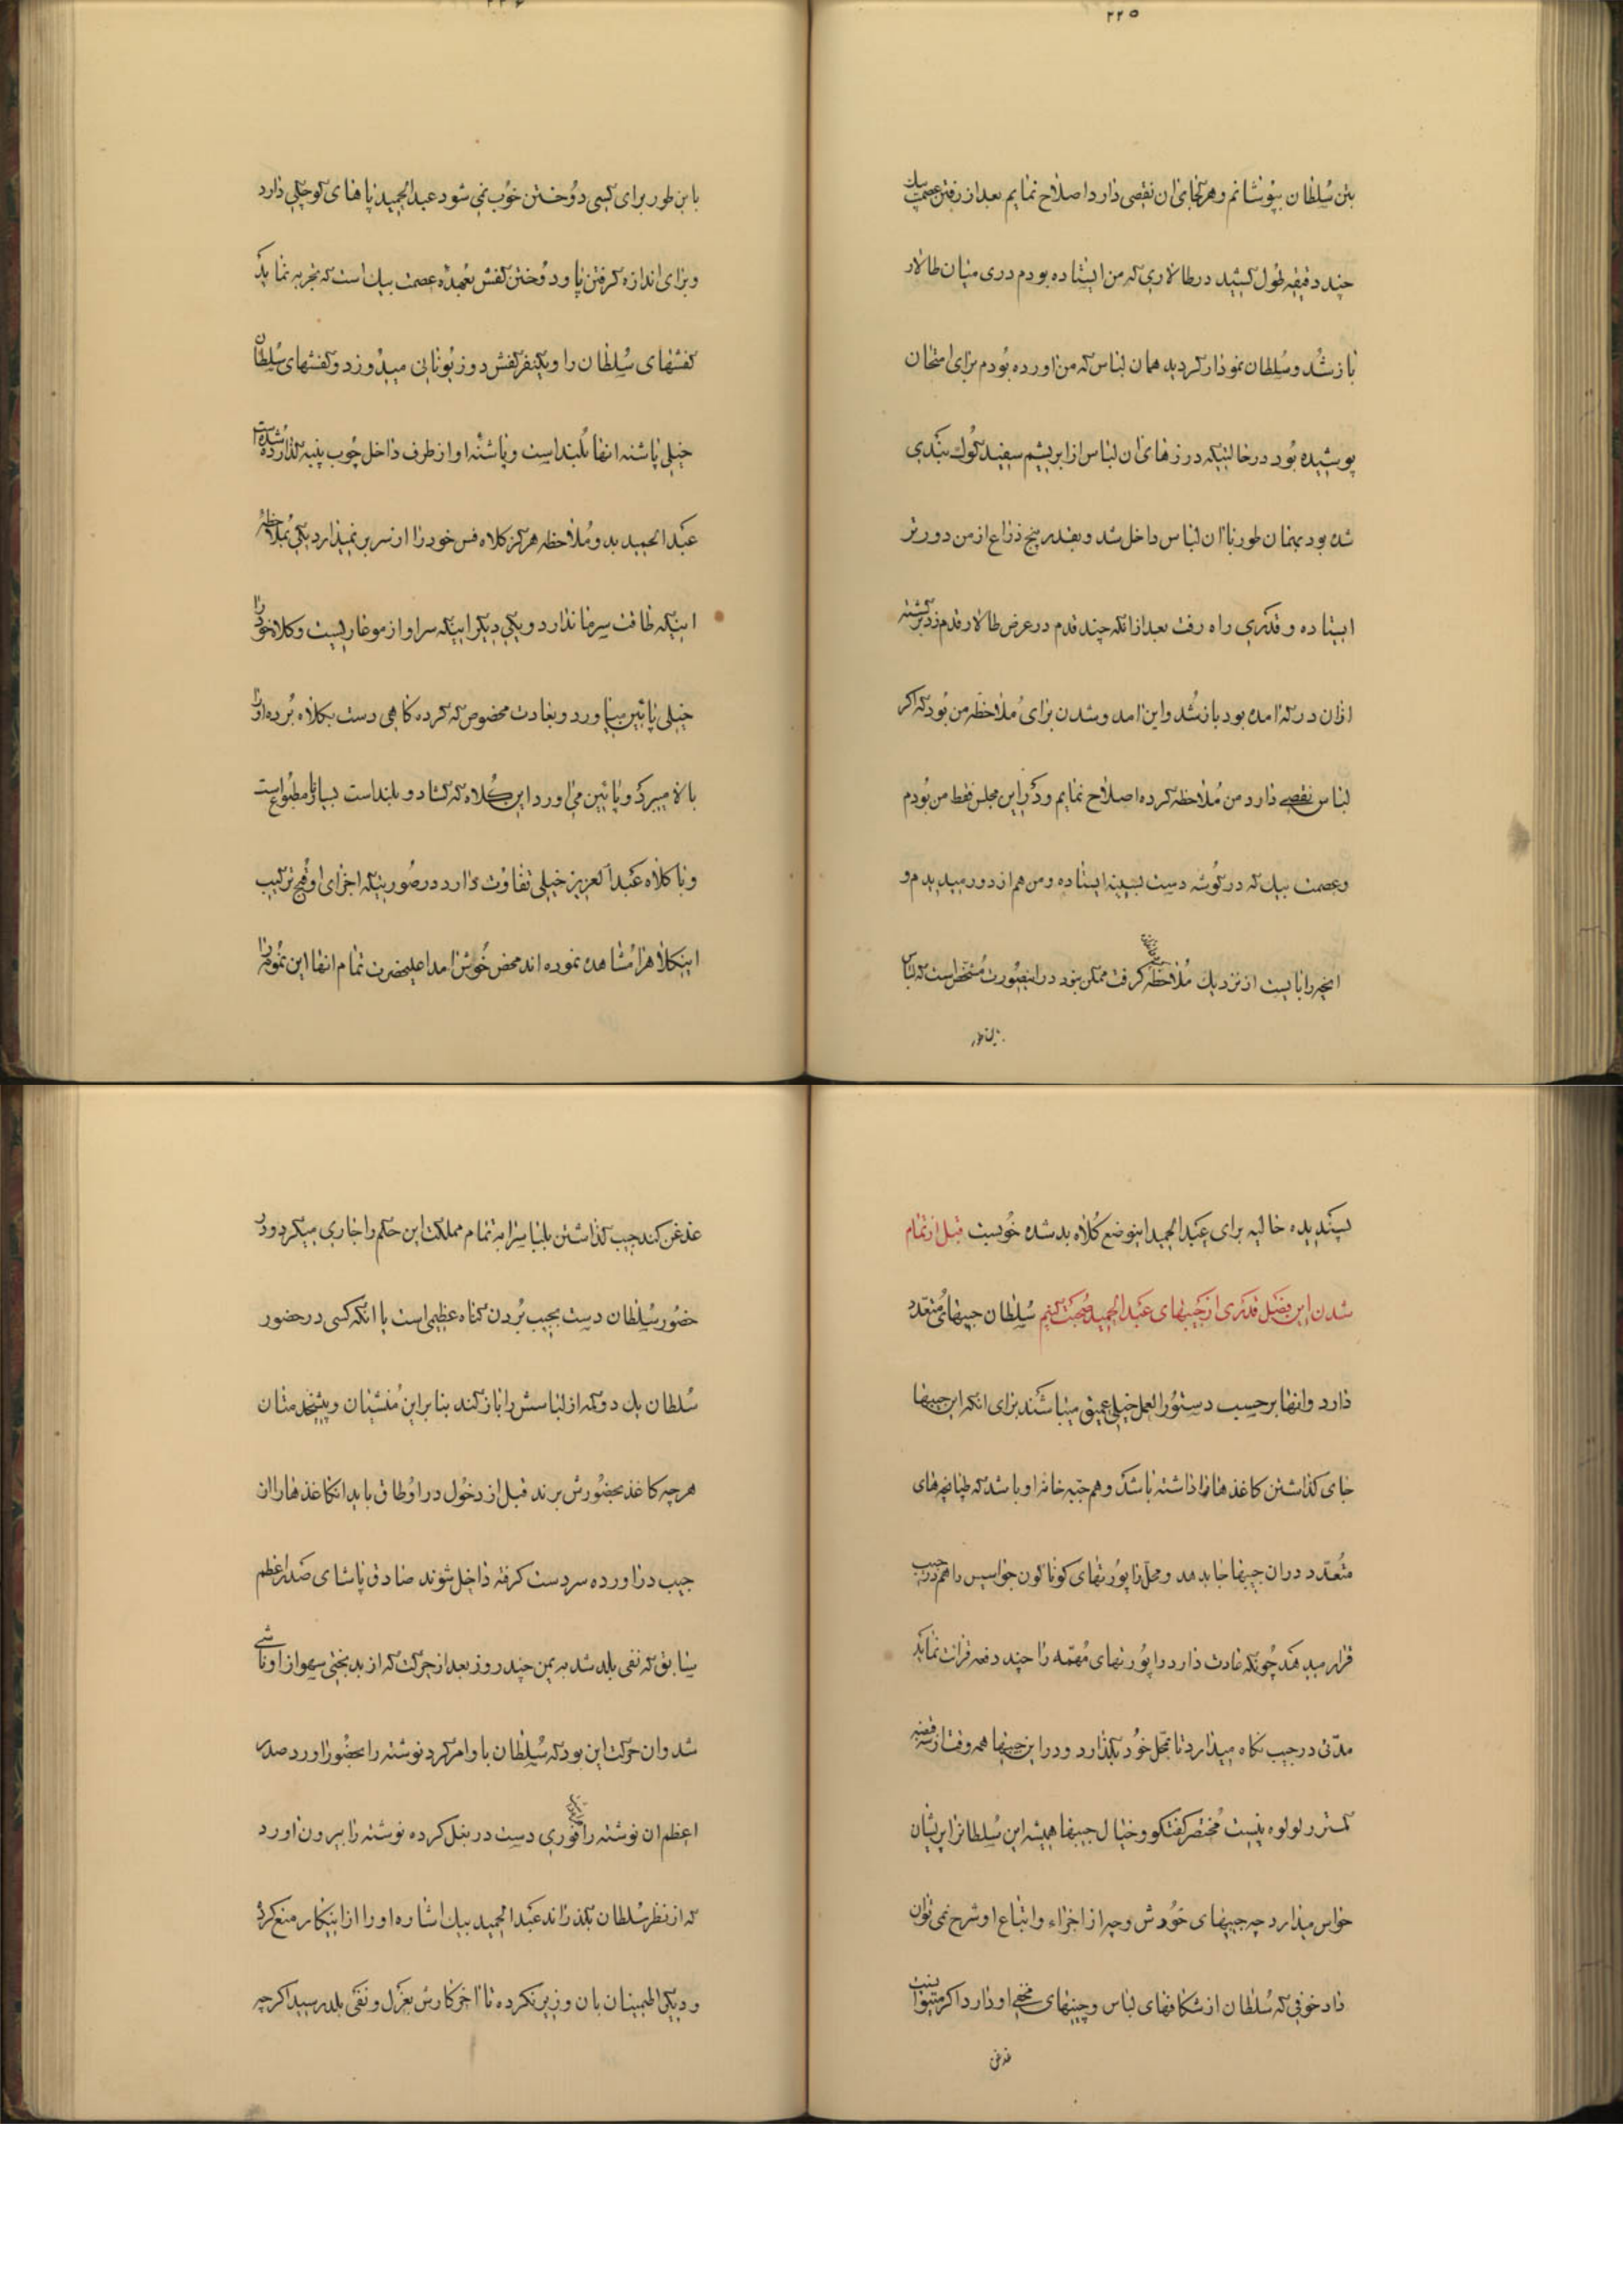 ۲۲۵
بتن سُلطان بپوشانم و هر کجای ان نقصی دارد اصلاح نمایم بعد از رفتن عصمت بیك
چند دقیقه طول کشید در طالاری که من ایستاده بودم دری میان طالار
باز شُد و سُلطان نمودار کردید همان لباس که من اورده بُودم برای امتحان
پوشیده بُود در حالتیکه درزهای ان لباس از ابریشم سفید کوك بندی
شده بود بهمان طور با ان لباس داخل شد و بقدر پنج ذراع از من دورتر
ایستاده و قدری راه رفت بعد از انکه چند قدم در عرض طالار قدم زد برکشته
ازان در که امده بود باز شُد و این امد و شدن برای مُلاحظه من بُود که اکر
لباس نقصی دارد من مُلاحظه کرده اصلاح نمایم و در این مجلس فقط من بُودم
و عصمت بیك که در کوشه دست بسینه ایستاده و من هم از دور میدیدم و
انچه را بایست از نزدیك مُلاحظه کرفت ممکن نبود در اینصُورت مُشخص است که لباس
باین طور
باین طور برای کسی دُوختن خوُب نمی شود عبدالحمید پاهای کوچکی دارد
و برای اندازه کرفتن پا و دُوختن کفش بعُهده عصمت بیك است که تجربه نماید
کفشهای سُلطان را و یکنفر کفش دوز یُونانی میدُوزد و کفشهای سُلطان
خیلی پاشنه انها بُلند است و پاشنه او از طرف داخل چُوب پنبه کذارده شده است
عَبدالحمید بدو مُلاحظه هرکز کلاه فس خود را از سر بر نمیدارد یکی بمُلاحظه
اینکه طاقت سرما ندارد و یکی دیکر اینکه سر او از مو عاریست و کلاه خود را
خیلی پائین میاورد و بعادت مخصوص که کرده کاهی دست بکلاه بُرده او را
بالا میبرد و پائین می اورد این کُلاه که کشاد و بلند است بسیار نامطبُوع است
و با کلاه عَبدالعزیز خیلی تفاوُت دارد در صُورتیکه اجزای او قُبح ترکیب
اینکلاه را مُشاهده نموده اند محض خُوش امد اعلیحضرت تمام انها این نمُونه را
پسندیده حالیه برای عَبدالحمید اینوضع کُلاه بد شده خوُبست قبل از تمام
شدن این فصل قدری از جیبهای عَبدالحمید صُحبت کنیم سُلطان جیبهای مُتعدّد
دارد و انها بر حسب دستُورالعمل خیلی عمیق میباشند برای انکه این جیبها
جای کذاشتن کاغذها را داشته باشد و هم جبه خانه او باشد که طپانچهای
متُعدّد در ان جیبها جا بدهد و محل راپورُتهای کوناکون جواسیس را هم در جیب
قرار میدهد چُونکه عادت دارد راپورُتهای مُهمّه را چند دفعه قرائت نماید
مدّتی در جیب نکاه میدارد تا بمحل خوُد بکذارد و در این جیبها همه وقت از سه قبضه
کمتر رولوه نیست مُختصر کفتکو و خیال جیبها همیشه این سُلطان را پریشان
حواس میدارد چه جیبهای خوُدش و چه از اجزاء و اتباع او شرح نمی توان
داد خوفی که سُلطان از شکافهای لباس و جیبهای مخفی او دارد اکر میتوانست
غدغن
غدغن کند جیب کذاشتن بلباس را به تمام مملکت این حکم را جاری میکرد و در
حضُور سُلطان دست بجیب بُردن کناه عظیمی است یا انکه کسی در حضور
سُلطان یك دوکمه از لباسش را باز کند بنا براین مُنشیان و پیشخدمتان
هرچه کاغذ بحضُورش برند قبل از دخُول در اوُطاق باید انکاغذها را از
جیب در اورده سر دست کرفته داخل شوند صادق پاشای صدر اعظم
سابق که نفی بلد شد به یمن چند روز بعد از حرکت که از بدبختی سهو از او ناشی
شد و ان حرکت این بود که سُلطان باو امر کرد نوشته را بحضُور اورد صدر
اعظم ان نوشته را فوری دست در بغل کرده نوشته را بیرون اورد
که از نظر سُلطان بکذراند عَبدالحمید بیك اشاره او را از اینکار منع کرد
و دیکر اطمینان بان وزیر نکرده تا اخر کارش بعَزل و نفَی بلد رسید اکرچه